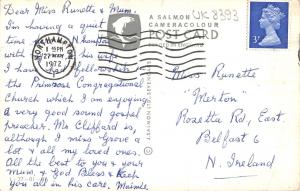 Dear Miss Runette & Mum,
I'm having a quiet
time in N.hampton
with I
I have fellowship
the Primrose Congregational
Church which I am enjoying
A very good sound gospel
preacher. Mr Clifford is,
although I miss Grove a
lot & all my loved ones
All the best to you & your
Mum, & God Bless & Keep
you all in his care. Maimie
NORTHAMPTON
1 PM
27 MAY
1972
A SALMON
CAMERACOLOUR
POST CARD
UK 8393
3P
J. SALMON LTD., SEVENOAKS
©
Miss Runette
"Merton"
Rosetta Rd, East,
Belfast 6
N. Ireland